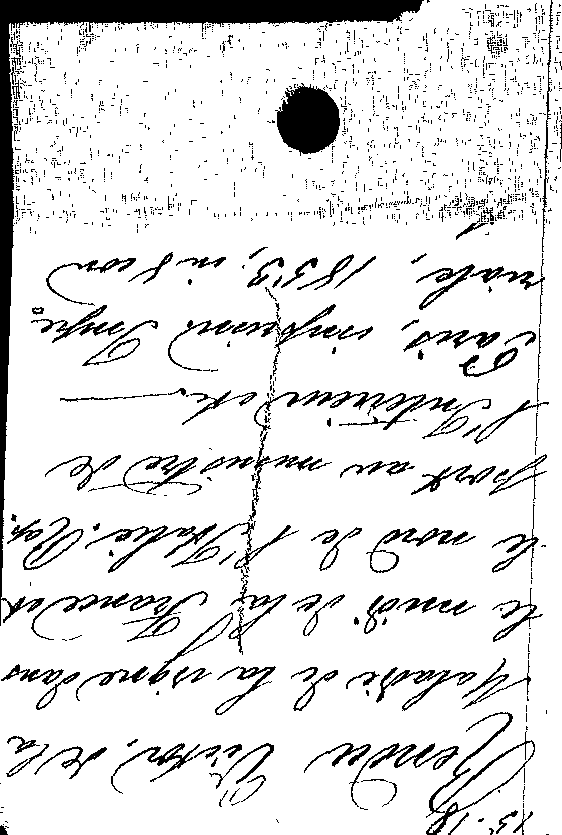 15.18
Rendu Victor, de la
Maladie de la vigne dans
le midi de la France et
le nord de l'Italie. Rap.
port au ministre de
l'Intérieur etc. —
Paris, imprim Impé
riale, 1853, in 8 con
1